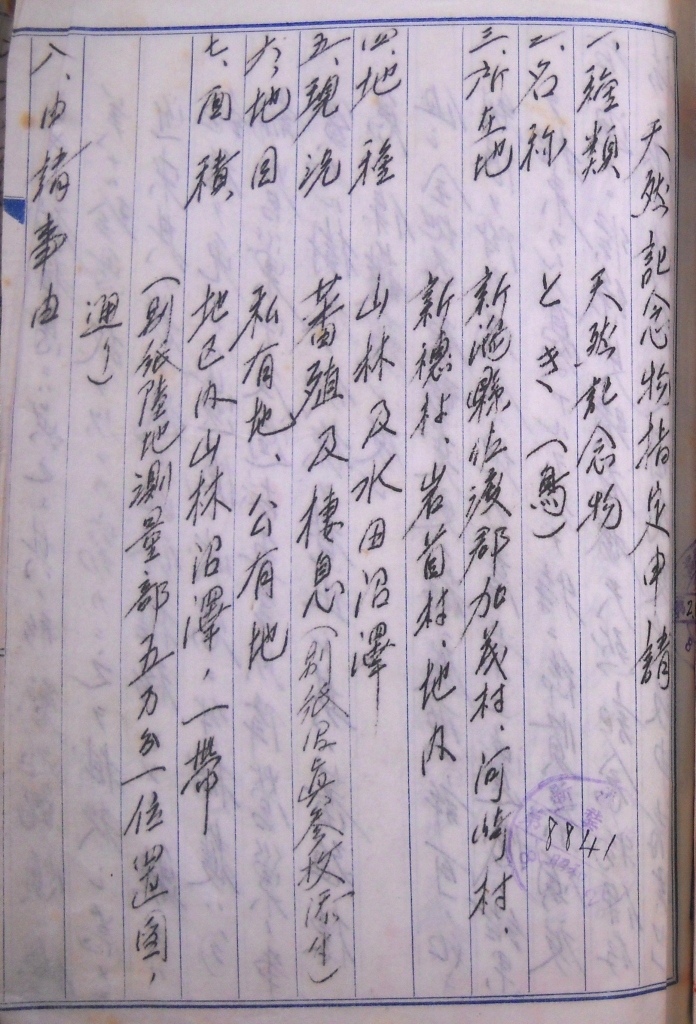 天然記念物指定申請
一、種類 天然記念物
二、名称 とき(鳥)
三、所在地 新潟縣佐渡郡加茂村、河崎村、
新穂村、岩首村、地内
四、地種 山林及水田沼澤
五、現況 蕃殖及棲息(別紙写真参枚添付)
六、地目 私有地、公有地
七、面積 地区内山林沼澤、一帯
(別紙陸地測量部五万分一位置圖、
通り)
八、申請事由
8841